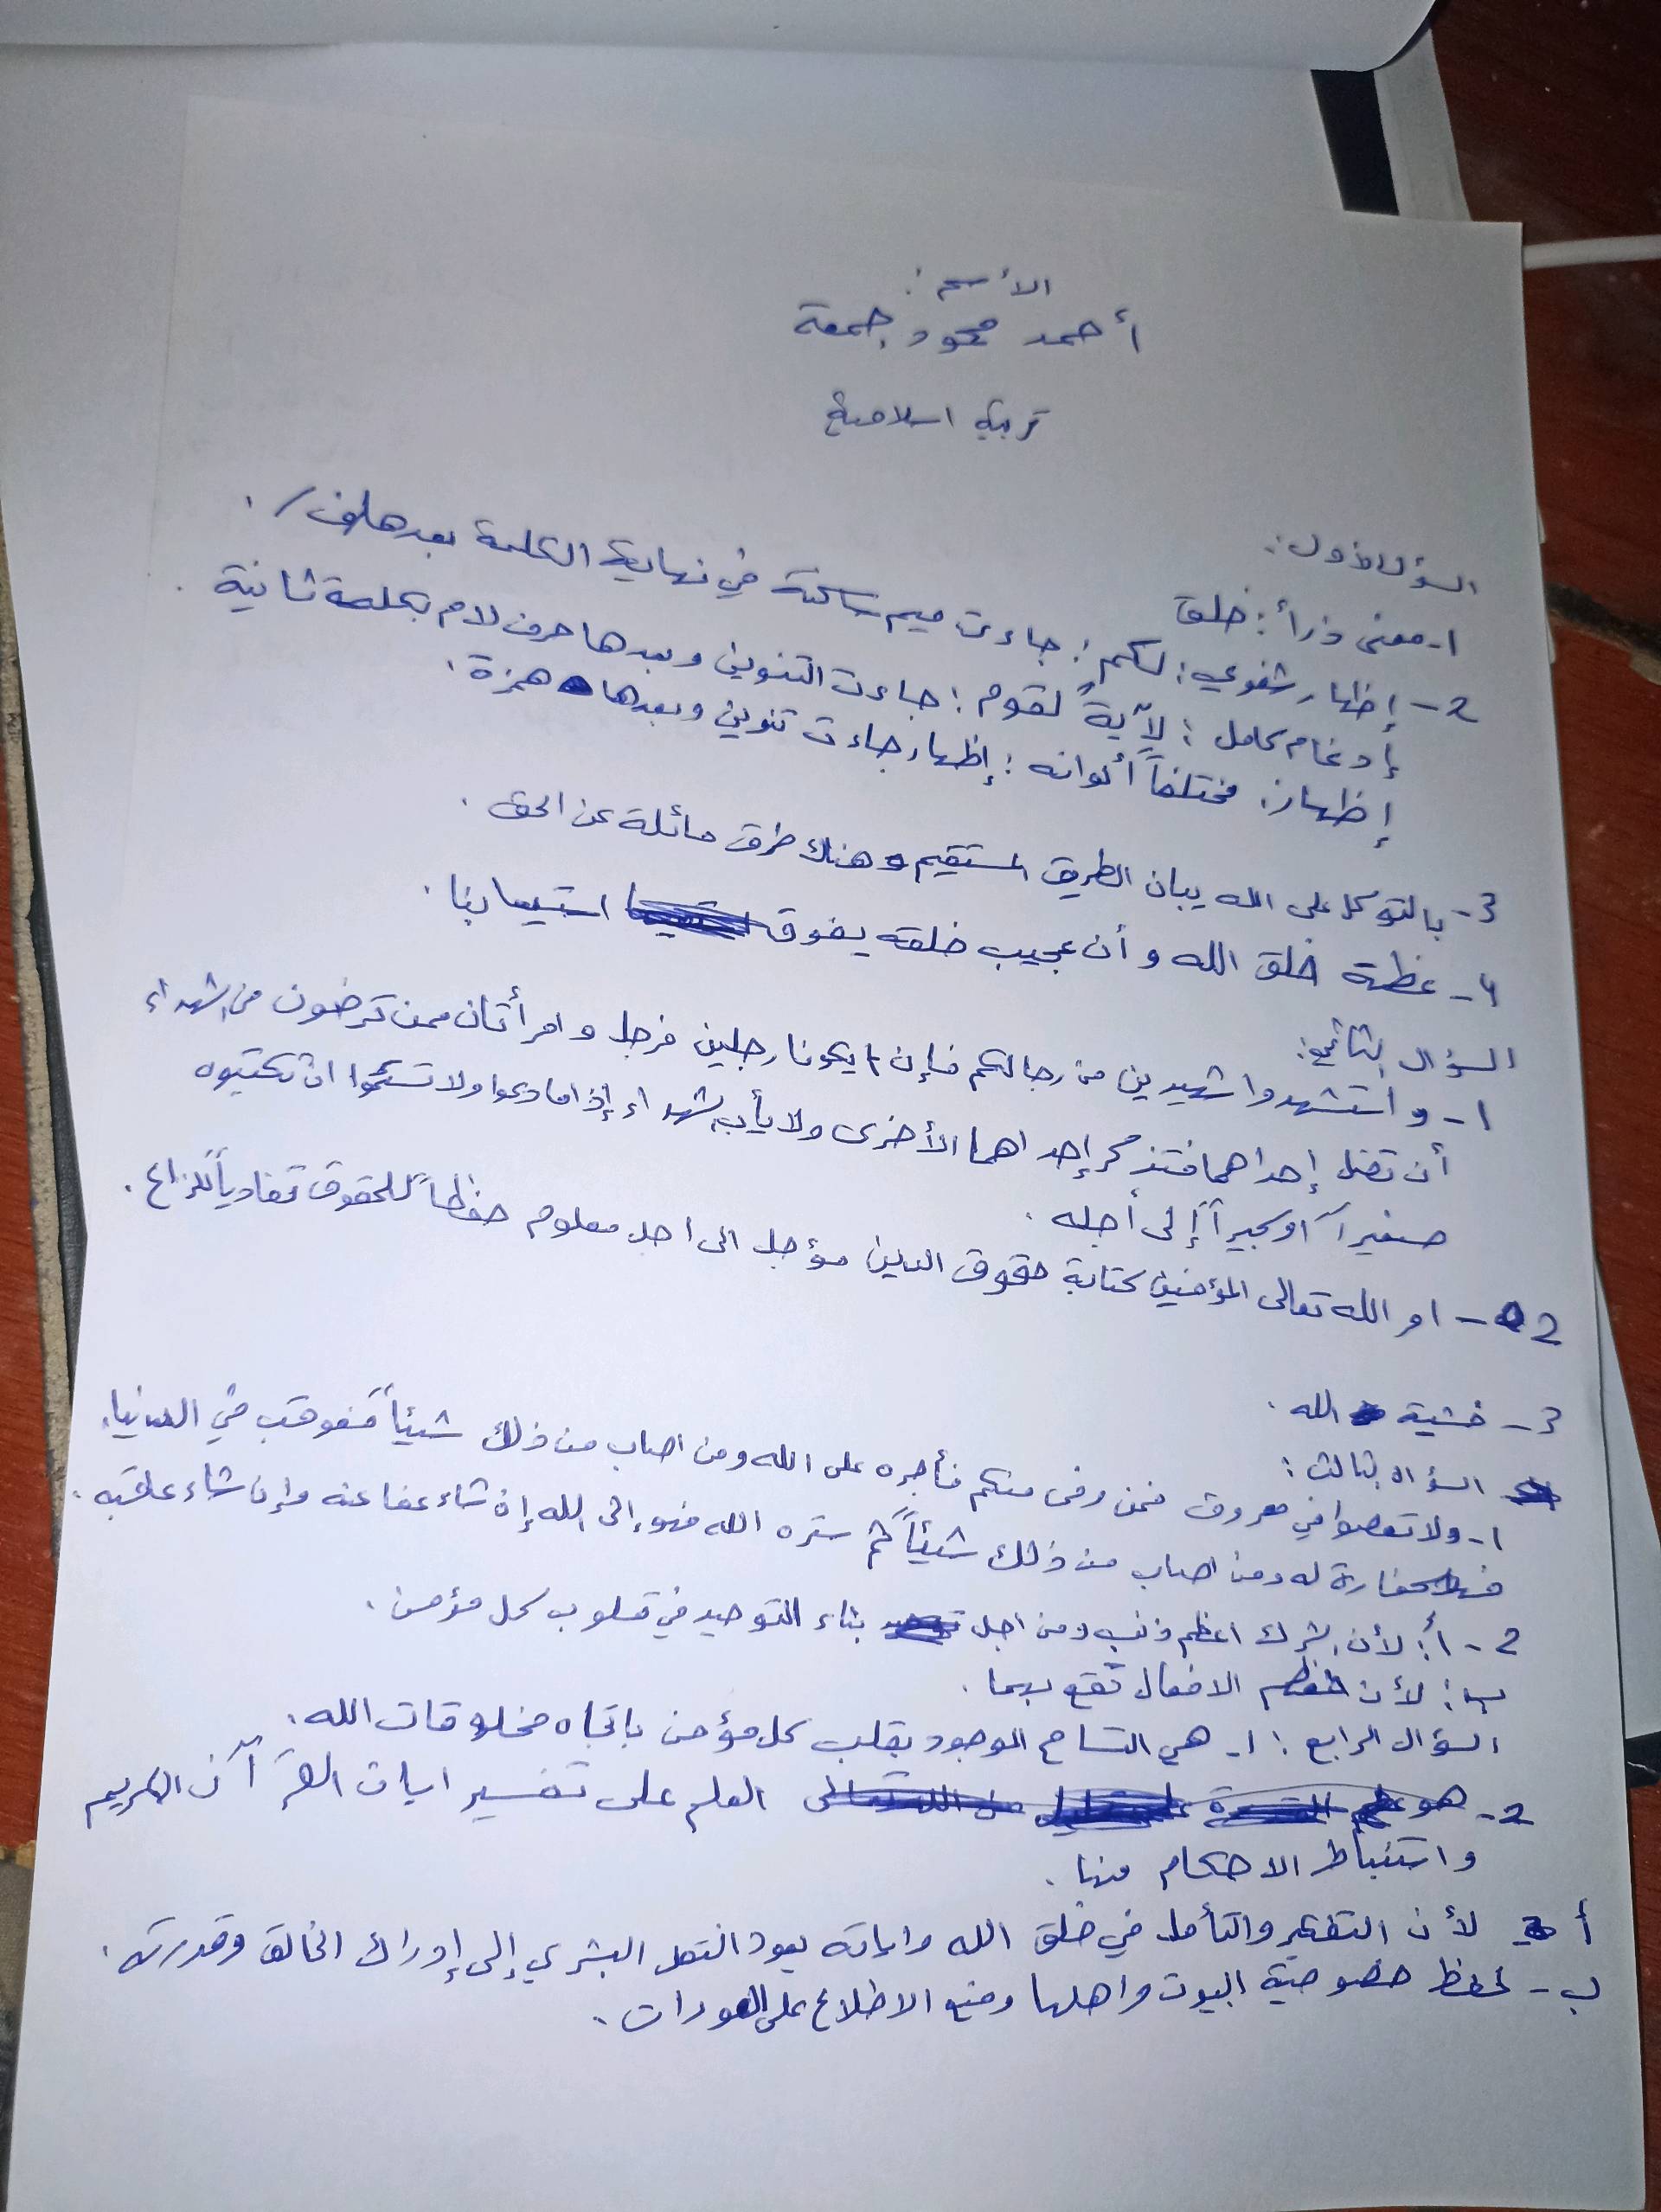 الأسم:
أحمد محمود جمعة
تربية اسلامية
السؤال الأول:
1- معنى ذرأ: خلق
2- إظهار شفوي: لكم: جاءت ميم ساكنة في نهاية الكلمة بعدها
إدغام كامل: لآيةً لقوم: جاءت التنوين وبعدها حرف لام بكلمة ثانية.
إظهار: مختلفاً ألوانه: إظهار جاءت تنوين وبعدها همزة.
3- بالتوكل على الله يبان الطريق المستقيم وهناك طرق مائلة عن الحق.
4- عظمة خلق الله وأن عجيب خلقه يفوق استيعابنا.
السؤال الثاني:
1- واستشهدوا شهيدين من رجالكم فإن لم يكونا رجلين فرجل وامرأتان ممن ترضون من الشهداء
أن تضل إحداهما فتذكر إحداهما الأخرى ولا يأب الشهداء إذا ما دعوا ولا تسئموا ان تكتبوه
صغيراً او كبيراً إلى أجله.
2- امر الله تعالى المؤمنين كتابة حقوق الدين مؤجل الى اجل معلوم حفظاً للحقوق تفادياً للنزاع.
3- خشية الله.
السؤال الثالث:
1- ولا تعصوا في معروف فمن وفى منكم فأجره على الله ومن اصاب من ذلك شيئاً فعوقب في الدنيا.
فهو كفارة له ومن اصاب من ذلك شيئاً ثم ستره الله فهو إلى الله إن شاء عفا عنه وإن شاء عاقبه.
2- أ: لأن الشرك اعظم ذنب ومن اجل بناء التوحيد في قلوب كل مؤمن.
ب: لأن معظم الافعال تقع بهما.
السؤال الرابع: 1- هي التسامح الموجود بقلب كل مؤمن باتجاه مخلوقات الله.
2- هو العلم على تفسير ايات القرآن الكريم
واستنباط الاحكام منها.
أ- لأن التفكير والتأمل في خلق الله واياته يعود العقل البشري إلى إدراك الخالق وقدرته.
ب- لحفظ خصوصية البيوت واهلها ومنع الاطلاع على العورات.